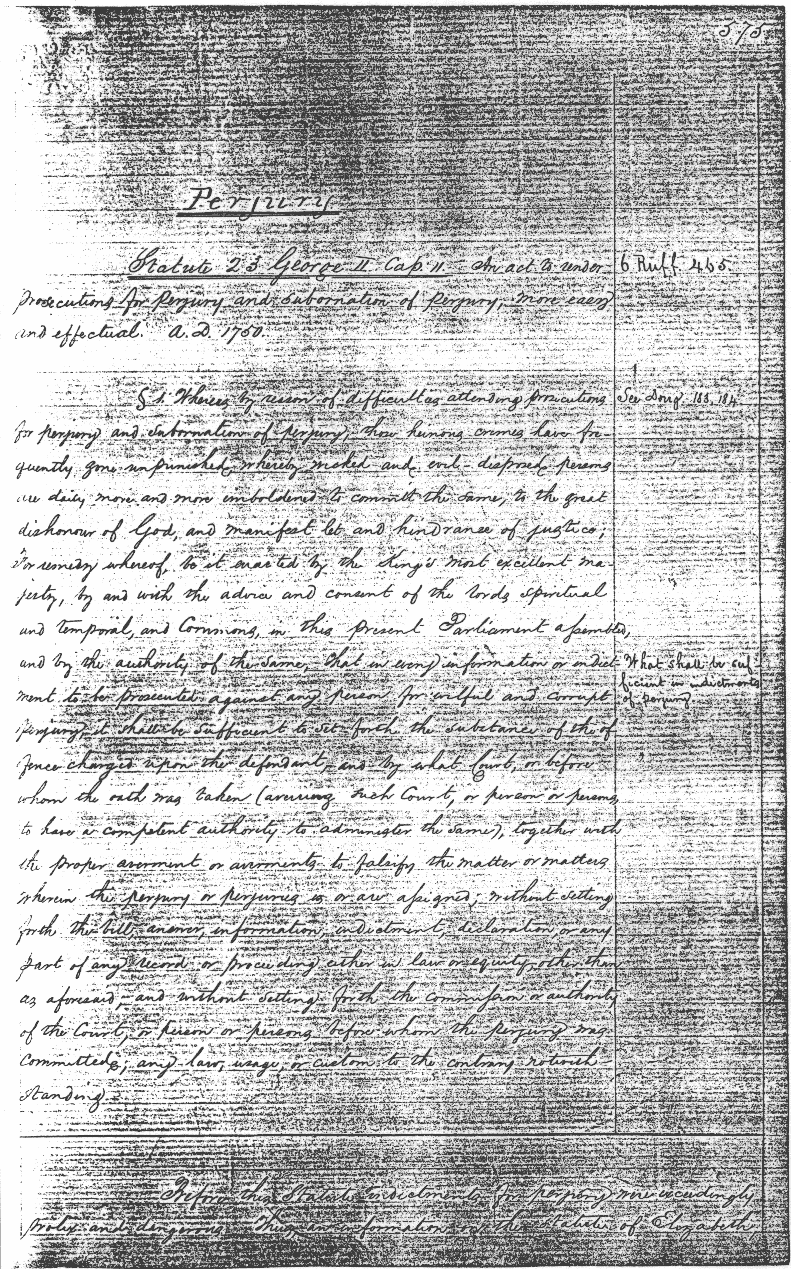 575
Perjury
Statute 23 George II Cap. 11. An act to render
6 Ruff. 465.
prosecutions for perjury and subornation of perjury, more easy
and effectual. A.D. 1750.
§ 1. Whereas by reason of difficulties attending prosecutions
See Doug. 183, 184
for perjury and subornation of perjury, those heinous crimes have fre-
quently gone unpunished, whereby wicked and evil-disposed persons
are daily more and more emboldened to committ the same, to the great
dishonour of God, and manifest let and hindrance of justice;
For remedy whereof, be it enacted by the King's most excellent ma-
jesty, by and with the advice and consent of the lords spiritual
and temporal, and Commons, in this present Parliament assembled,
and by the authority of the same, that in every information or indict-
What shall be suf-
ficient in indictments
of perjury
ment to be prosecuted against any person for wilful and corrupt
perjury, it shall be sufficient to set forth the substance of the of
fence charged upon the defendant, and by what Court, or before
whom the oath was taken (averring such Court, or person or persons,
to have a competent authority to administer the same), together with
the proper averment or averments to falsify the matter or matters
wherein the perjury or perjuries is or are assigned; without setting
forth the bill, answer, information, indictment, declaration, or any
part of any record or proceeding either in law or equity, other than
as aforesaid, and without setting forth the commission or authority
of the Court, or person or persons before whom the perjury was
committed; any law, usage, or custom to the contrary notwith
standing.
Before this Statute indictments for perjury were exceedingly
prolix and dangerous. Thus, in informations on the statute of Elizabeth,